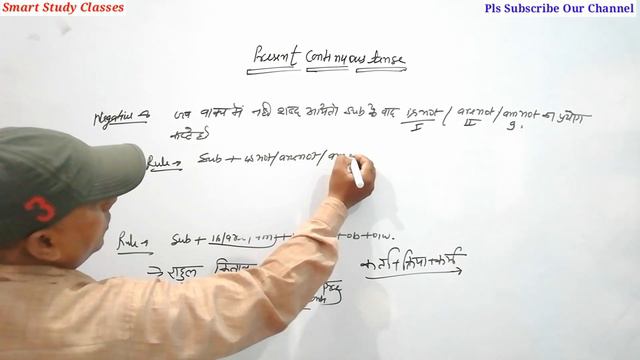 Smart Study Classes
Pls Subscribe Our Channel
Present Continuous tense
Negative → जब वाक्य में नही शब्द आये तो Sub के बाद is not / are not / am not का प्रयोग
I II 9.
करते है।
Rule → Sub + is not / are not / am
Rule → Sub + is/are/am + +ob+o/w.
→ राहुल किताब
कर्ता + क्रिया + कर्म
3